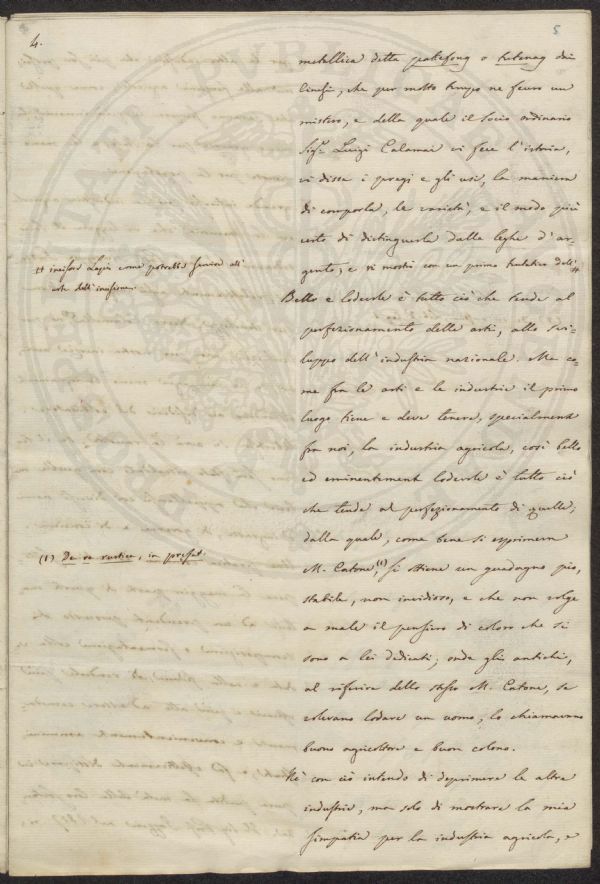 4.
5
metallica detta packfong o tutenag dai
Cinesi, che per molto tempo ne fecero un
mistero, e della quale il Socio ordinario
Sigr. Luigi Calamai vi fece l'istoria,
vi disse i pregi e gli usi, la maniera
di comporla, le varietà, e il modo più
certo di distinguerla dalle leghe d'ar-
gento; e vi mostrò con un primo tentativo dell'#
# incisore Lapis come potrebbe servire all'
arte dell'incisione.
Bello e lodevole è tutto ciò che tende al
perfezionamento delle arti, allo svi-
luppo dell'industria nazionale. Ma co-
me fra le arti e le industrie il primo
luogo tiene e deve tenere, specialmente
fra noi, la industria agricola, così bello
ed eminentemente lodevole è tutto ciò
che tende al perfezionamento di quella;
dalla quale, come bene si esprimeva
M. Catone,(1) si ottiene un guadagno pio,
stabile, non invidioso, e che non volge
a male il pensiero di coloro che si
sono a lei dedicati; onde gli antichi,
al riferire dello stesso M. Catone, se
volevano lodare un uomo, lo chiamavano
buono agricoltore e buon colono.
(1) De re rustica, in prefat.
Nè con ciò intendo di deprimere le altre
industrie, ma solo di mostrare la mia
simpatia per la industria agricola, e